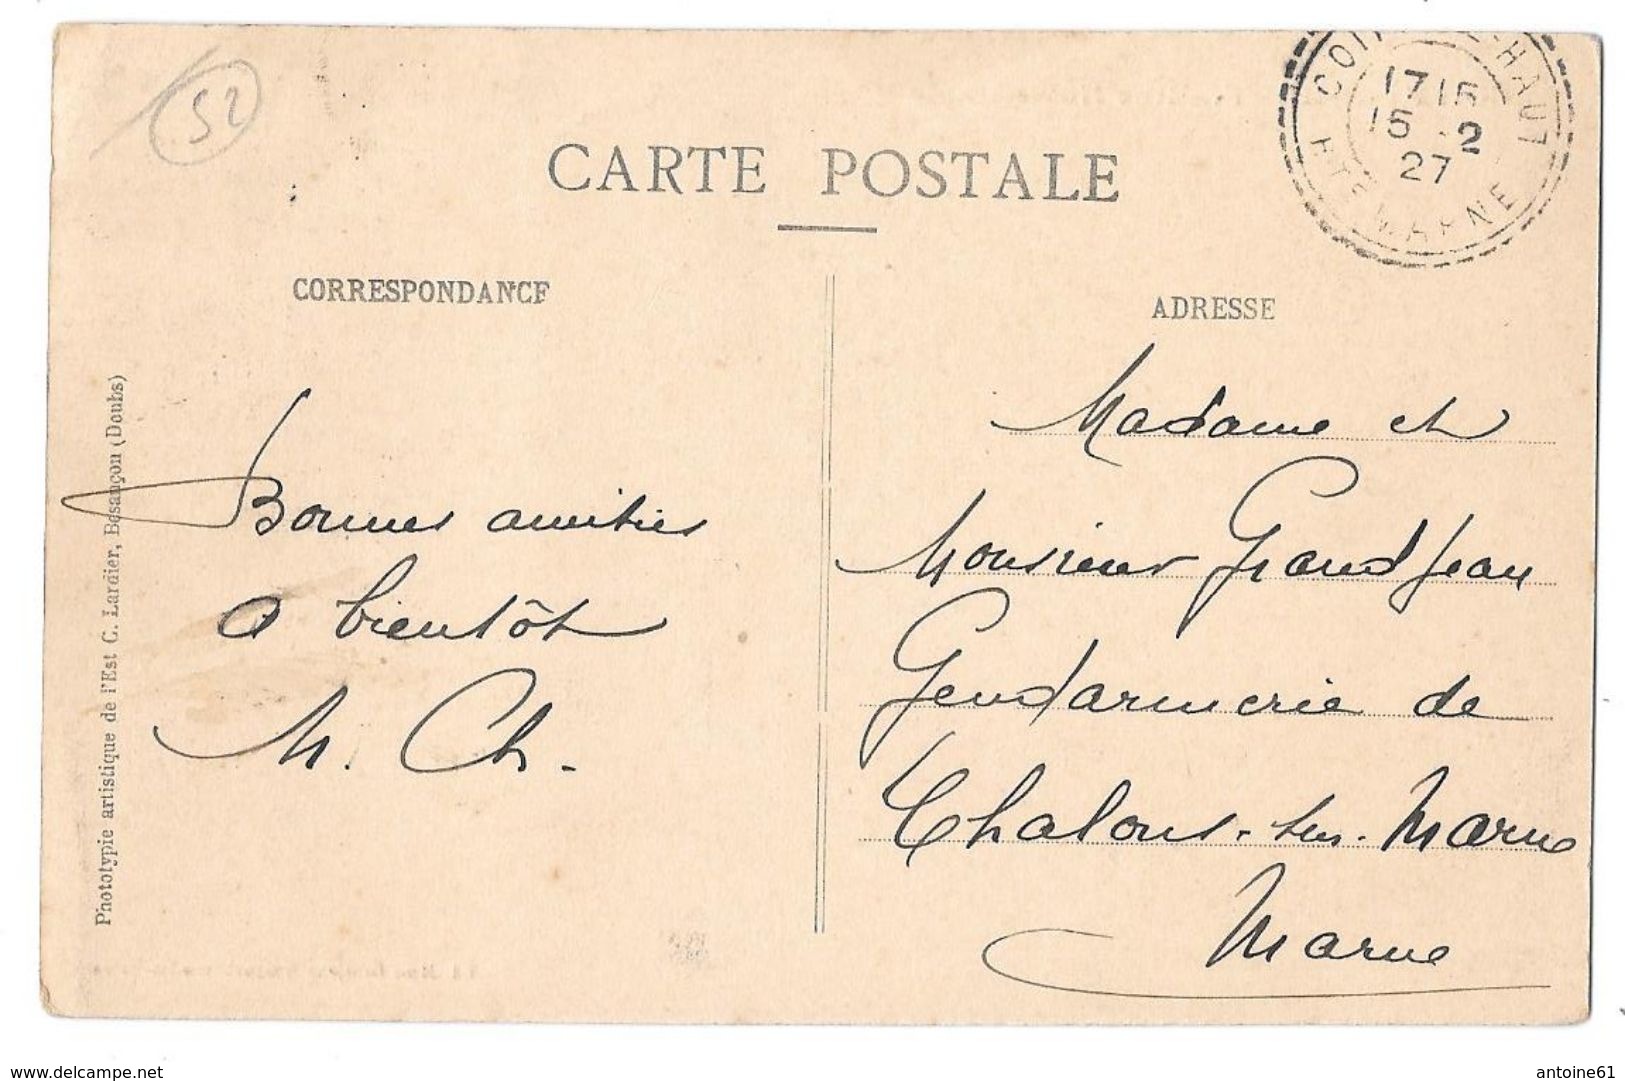 52
CARTE POSTALE
17 15
15 -2
27
HTE MARNE
CORRESPONDANCE
ADRESSE
Bonnes amitiés
a bientôt
M. Ch.
Madame et
Monsieur Grandjean
Gendarmerie de
Chalons-sur-Marne
Marne
Phototypie artistique de l'Est C. Lardier, Besançon (Doubs)
www.delcampe.net
antoine61